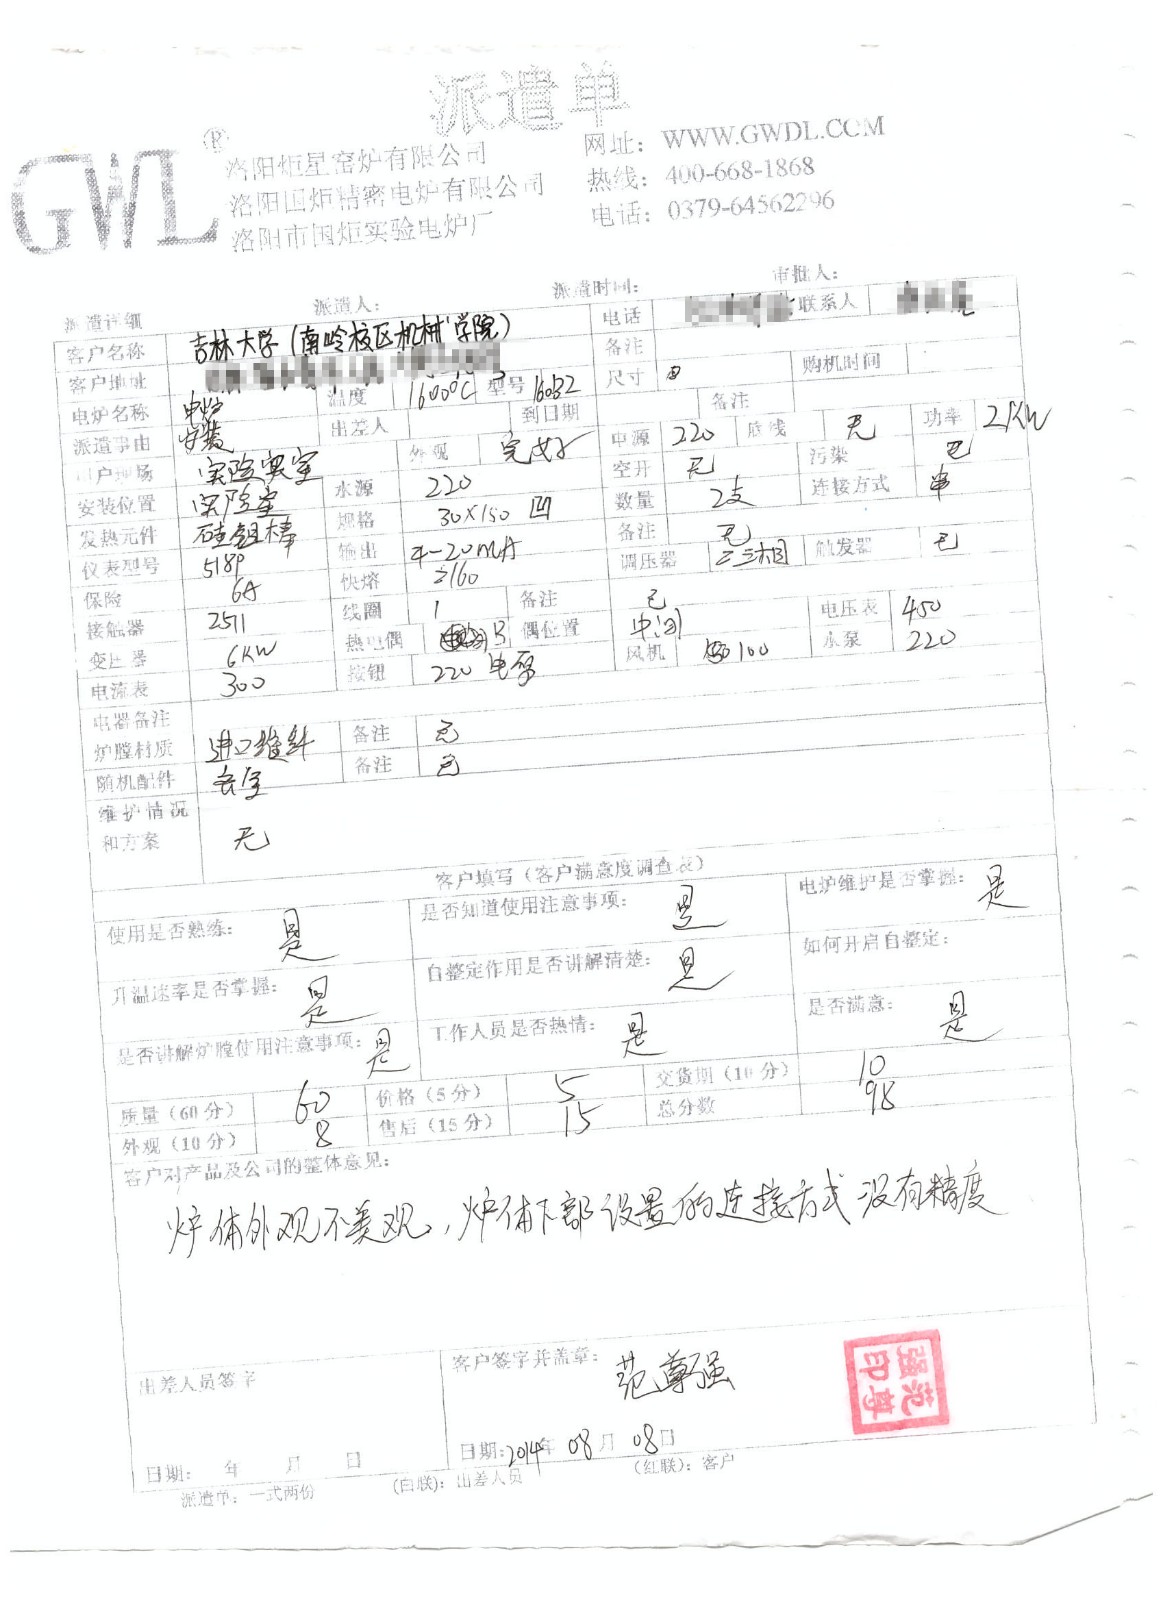 派遣单
GWDL®
洛阳炬星窑炉有限公司
洛阳国炬精密电炉有限公司
洛阳市国炬实验电炉厂
网址：WWW.GWDL.COM
热线：400-668-1868
电话：0379-64562296
派遣详细 派遣人： 派遣时间： 审批人：
客户名称 吉林大学（南岭校区机械学院） 电话 联系人
客户地址 备注
电炉名称 电炉 温度 1600℃ 型号 尺寸 购机时间
派遣事由 安装 出差人 到日期 备注
用户现场 实验实室 外观 完好 电源 220 底线 无 功率 2KW
安装位置 实验室 水源 220 空开 无 污染 无
发热元件 硅钼棒 规格 30×150 凹 数量 2支 连接方式 串
仪表型号 518p 输出 4-20mA 备注 无
保险 6A 快熔 调压器 三相 触发器 无
接触器 2511 线圈 1 备注 无
变压器 6KW 热电偶 偶位置 中间 电压表 450
电流表 300 按钮 220 风机 100 水泵 220
电器备注
炉膛材质 进口维纤 备注 无
随机配件 备注 无
维护情况
和方案 无
客户填写（客户满意度调查表）
使用是否熟练： 是 是否知道使用注意事项： 是 电炉维护是否掌握： 是
升温速率是否掌握： 是 自整定作用是否讲解清楚： 是 如何开启自整定：
是否讲解炉膛使用注意事项： 是 工作人员是否热情： 是 是否满意： 是
质量（60分） 60 价格（5分） 5 交货期（10分） 10
外观（10分） 8 售后（15分） 15 总分数 98
客户对产品及公司的整体意见：
炉体外观不美观，炉体下部设置的连接方式没有精度
出差人员签字 客户签字并盖章： 范尊强
强范
印尊
日期： 年 月 日 日期：2014年 08月 08日
派遣单：一式两份 （白联）：出差人员 （红联）：客户